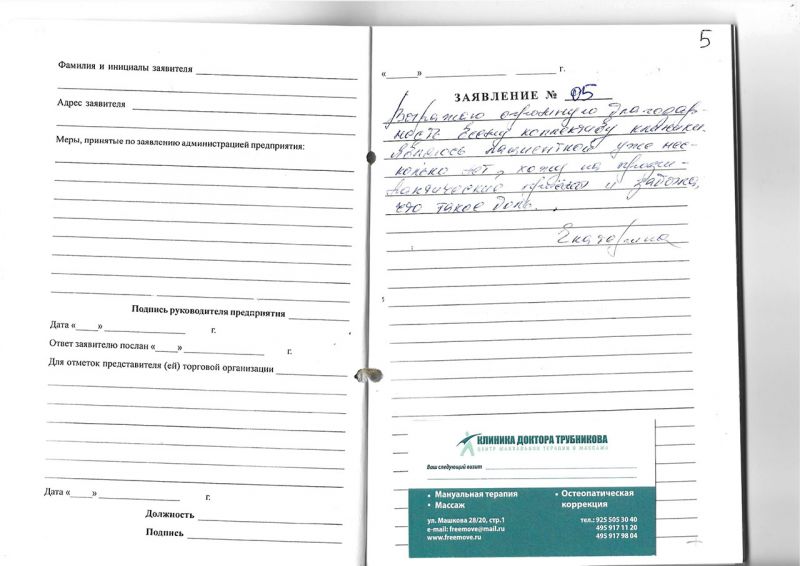 Фамилия и инициалы заявителя
Адрес заявителя
Меры, принятые по заявлению администрацией предприятия:
Подпись руководителя предприятия
Дата «____» ____________ г.
Ответ заявителю послан «____» ____________ г.
Для отметок представителя (ей) торговой организации
Дата «____» ____________ г.
Должность
Подпись
5
«____» ____________ г.
ЗАЯВЛЕНИЕ № 05
Выражаю огромную благодар-
ность всему коллективу клиники.
Являюсь пациенткой уже нес-
колько лет, хожу на профи-
лактические приёмы и забыла,
что такое боль.
Екатерина
КЛИНИКА ДОКТОРА ТРУБНИКОВА
ЦЕНТР МАНУАЛЬНОЙ ТЕРАПИИ И МАССАЖА
Ваш следующий визит
• Мануальная терапия
• Массаж
• Остеопатическая
коррекция
ул. Машкова 28/20, стр.1
e-mail: freemove@mail.ru
www.freemove.ru
тел.: 925 505 30 40
495 917 11 20
495 917 98 04